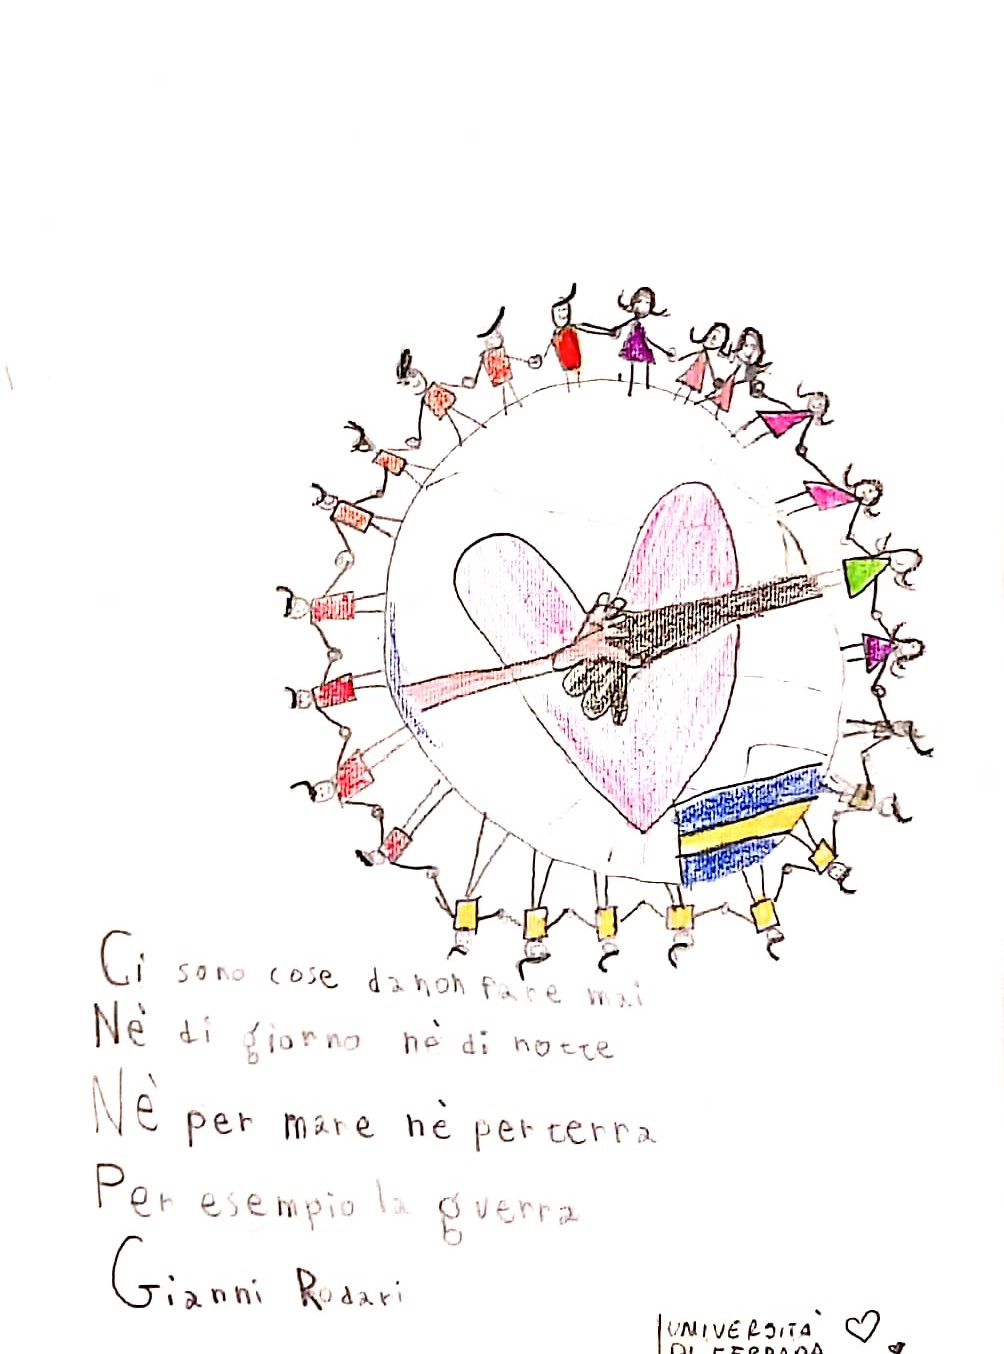 Ci sono cose da non fare mai
Nè di giorno nè di notte
Nè per mare nè per terra
Per esempio la guerra
Gianni Rodari
UNIVERSITÀ
DI FERRARA